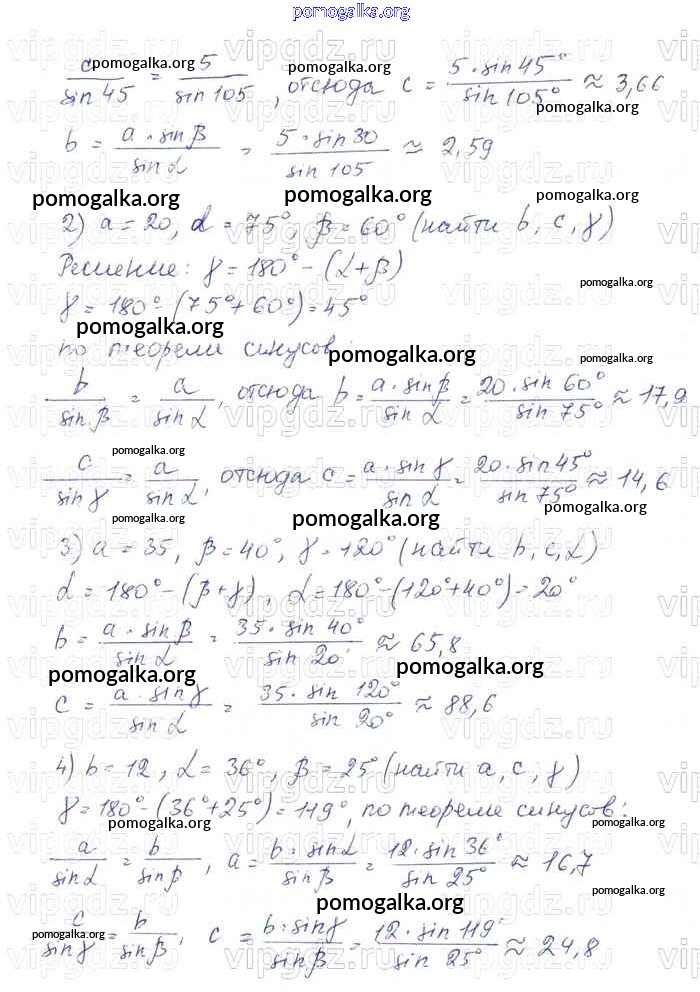 pomogalka.org
c/sin 45 = 5/sin 105, отсюда c = 5·sin 45°/sin 105° ≈ 3,66
b = a·sin β/sin α = 5·sin 30/sin 105 ≈ 2,59
2) a = 20, α = 75°, β = 60° (найти b, c, γ)
Решение: γ = 180° - (α + β)
γ = 180° - (75° + 60°) = 45°
по теореме синусов:
b/sin β = a/sin α, отсюда b = a·sin β/sin α = 20·sin 60°/sin 75° ≈ 17,9
c/sin γ = a/sin α, отсюда c = a·sin γ/sin α = 20·sin 45°/sin 75° ≈ 14,6
3) a = 35, β = 40°, γ = 120° (найти b, c, α)
α = 180° - (β + γ), α = 180° - (120° + 40°) = 20°
b = a·sin β/sin α = 35·sin 40°/sin 20° ≈ 65,8
c = a·sin γ/sin α = 35·sin 120°/sin 20° ≈ 88,6
4) b = 12, α = 36°, β = 25° (найти a, c, γ)
γ = 180° - (36° + 25°) = 119°, по теореме синусов:
a/sin α = b/sin β, a = b·sin α/sin β = 12·sin 36°/sin 25° ≈ 16,7
c/sin γ = b/sin β, c = b·sin γ/sin β = 12·sin 119°/sin 25° ≈ 24,8